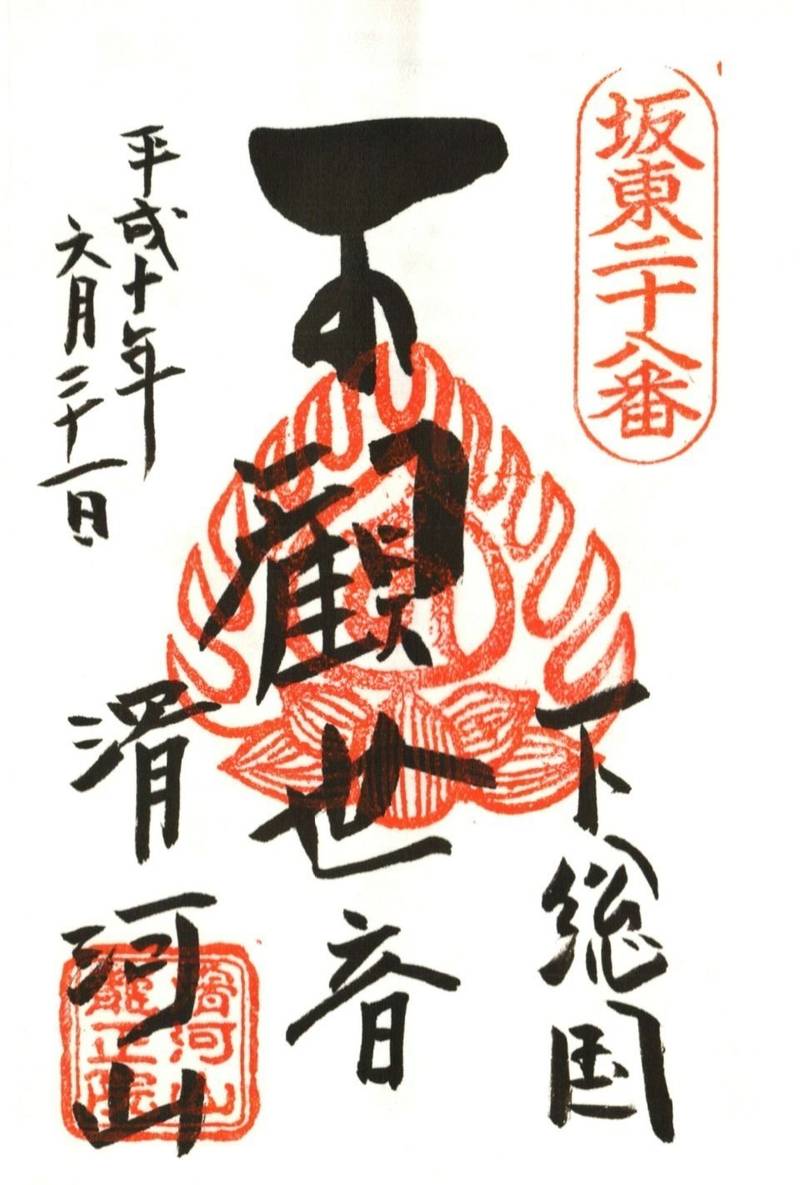 坂東二十八番
下総国
觀世音
平成十年
六月二十一日
滑河山
滑河山
龍正院